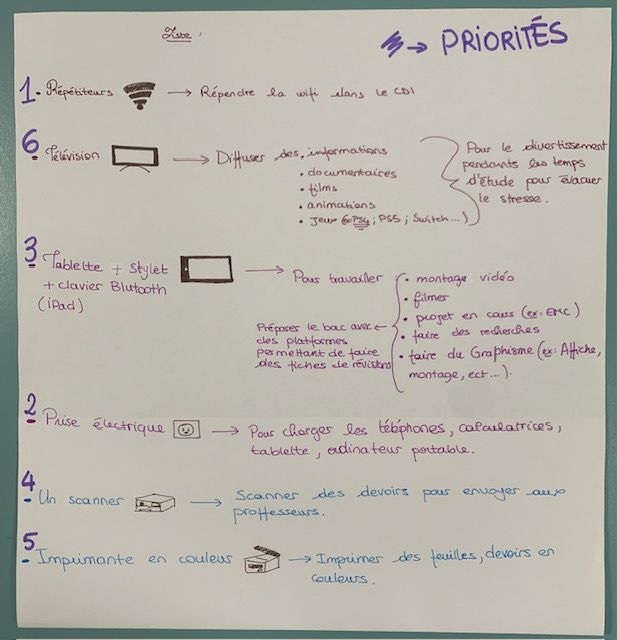 Liste :
→ PRIORITÉS
1 - Répétiteurs → Répendre la wifi dans le CDI
6
- Télévision → Diffuser des • informations
• documentaires
• films
• animations
• Jeux (PS4 ; PS5 ; Switch...)
Pour le divertissement
pendants les temps
d'étude pour évacuer
le stresse.
3
- Tablette + stylet
+ clavier Blutooth
(iPad)
→ Pour travailler
• montage vidéo
• filmer
• projet en cours (ex: EMC)
• faire des recherches
• faire du Graphisme (ex: Affiche,
montage, ect...).
Préparer le bac avec ←
des platformes
permettant de faire
des fiches de révisions
2
- Prise électrique → Pour charger les téléphones, calculatrices,
tablette, ordinateur portable.
4
- Un scanner → Scanner des devoirs pour envoyer aux
proffesseurs.
5
- Imprimante en couleur → Imprimer des feuilles, devoirs en
couleurs.